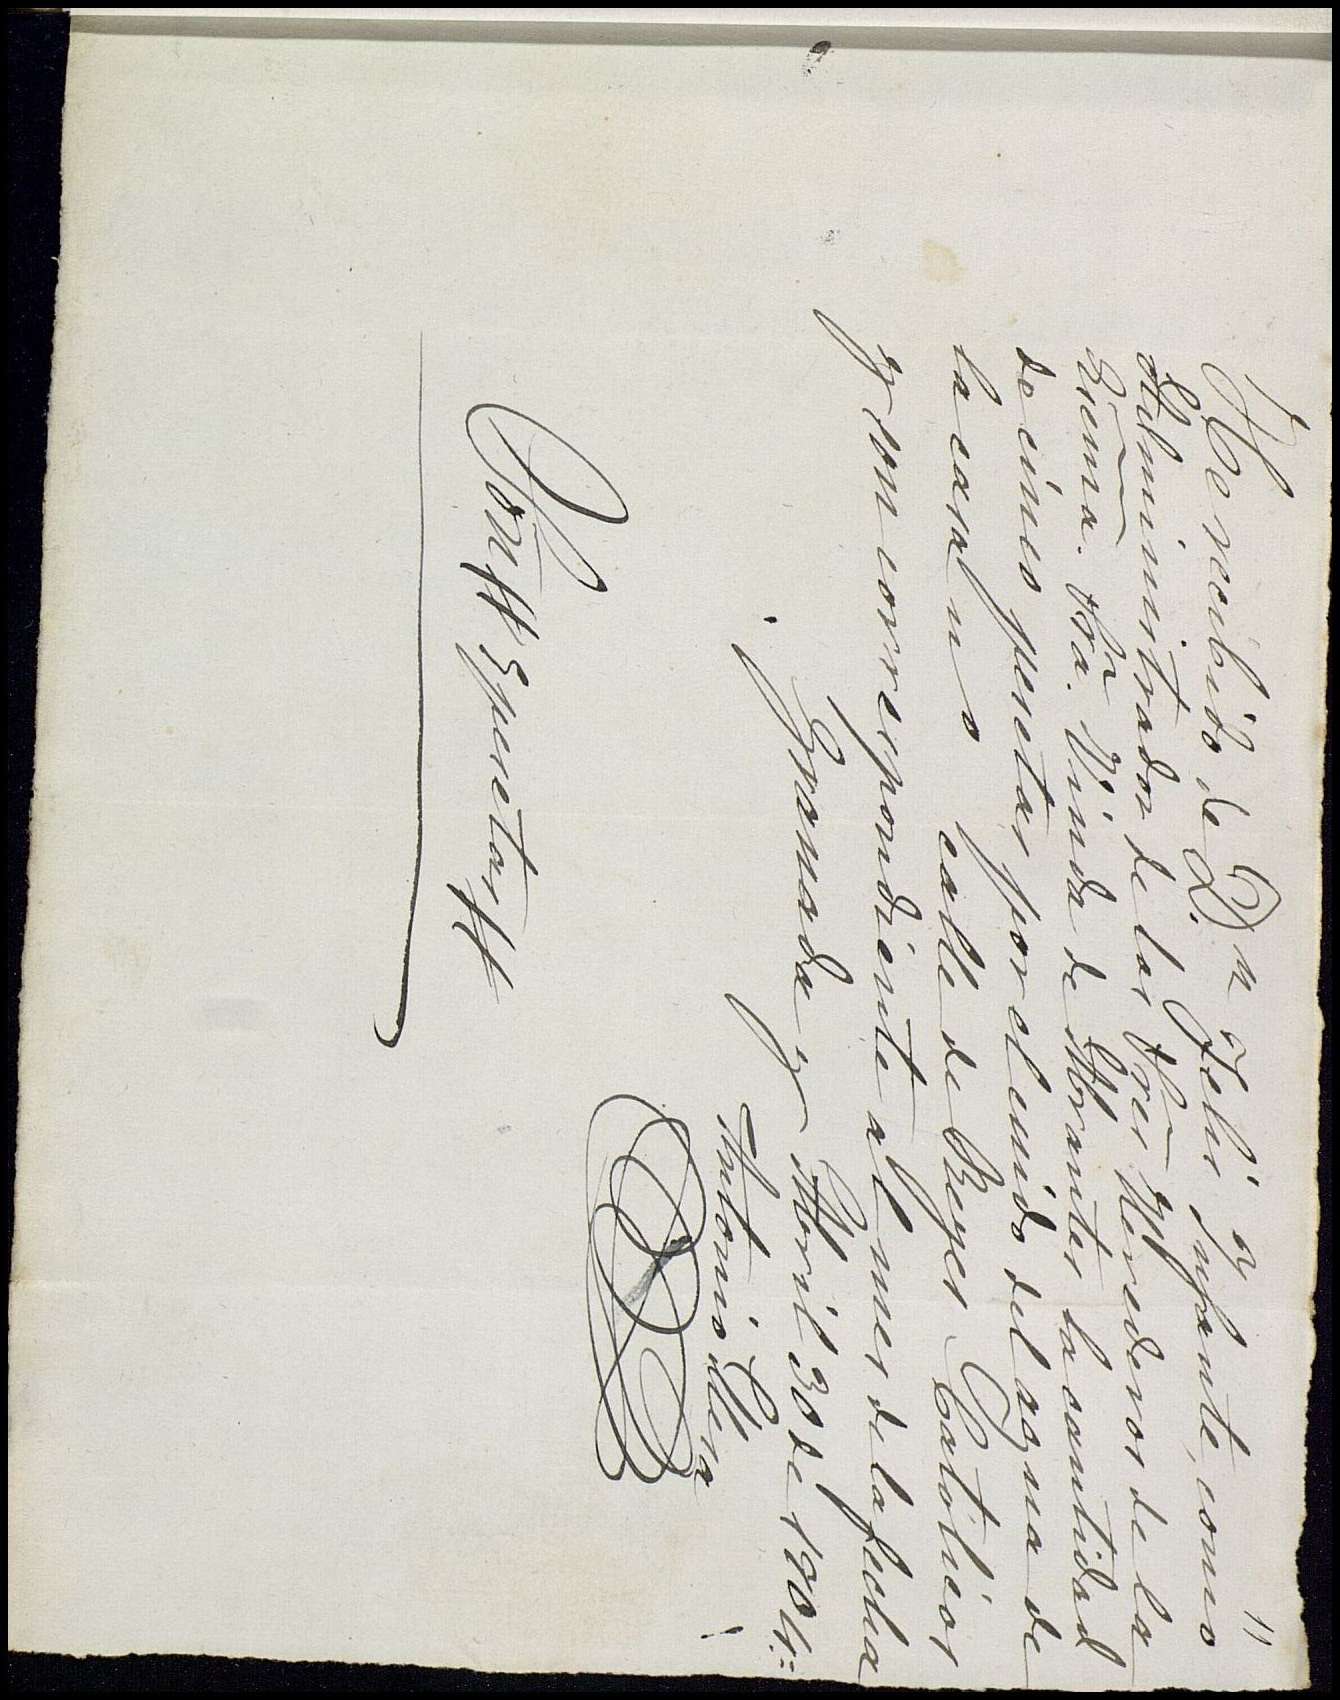 11
He recibido de Dn Felis y Infante, como
Administrador de los Sres Herederos de la
Exma. Sra. Viuda de Abrantes la cantidad
de cinco pesetas por el cuido del agua de
la casa nº calle de Reyes Catolicos
y  correspondiente al mes de la fecha
Granada y Abril 30 de 1904.
Antonio Mera
Son # 5 pesetas #